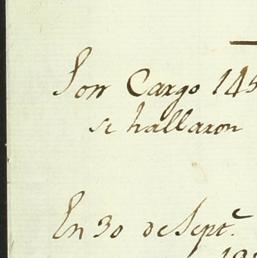 Son Cargo 145
se hallaron
En 30 de Sept.e